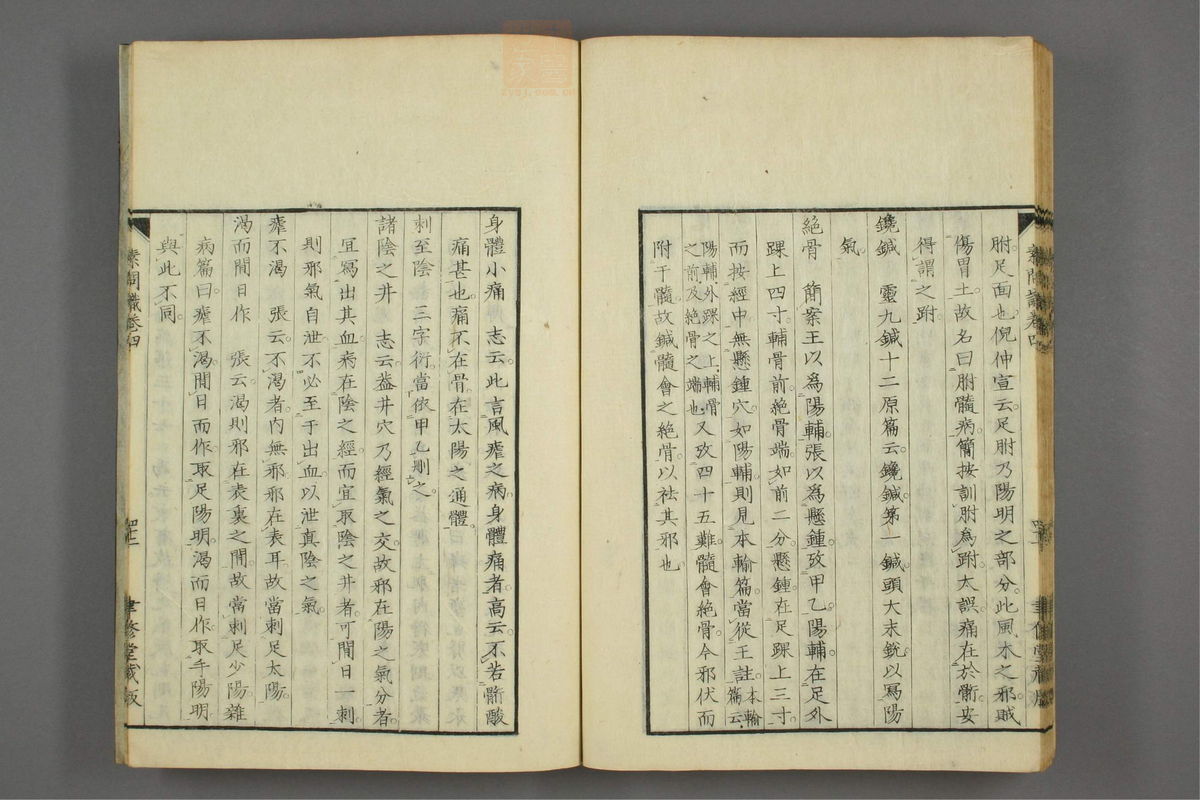 胕足面也倪仲宣云足胕乃陽明之部分此風木之邪賊
傷胃土故名曰胕髓病簡按訓胕為跗太誤痛在於䯒安
得謂之跗
鑱鍼　靈九鍼十二原篇云鑱鍼第一鍼頭大末銳以寫陽
氣
絕骨　簡案王以為陽輔張以為懸鍾攷甲乙陽輔在足外
踝上四寸輔骨前絕骨端如前二分懸鍾在足踝上三寸
而按經中無懸鍾穴如陽輔則見本輸篇當從王註本輸篇云
陽輔外踝之上輔骨之前及絕骨之端也又攷四十五難髓會絕骨今邪伏而
附干髓故鍼髓會之絕骨以袪其邪也
素問識卷四
聿修堂藏版
身體小痛　志云此言風瘧之病身體痛者高云不若䯒酸
痛甚也痛不在骨在太陽之通體
刺至陰　三字衍當依甲乙刪之
諸陰之井　志云蓋井穴乃經氣之交故邪在陽之氣分者
宜寫出其血病在陰之經而宜取陰之井者可間日一刺
則邪氣自泄不必至于出血以泄真陰之氣
瘧不渴　張云不渴者內無邪邪在表耳故當刺足太陽
渴而間日作　張云渴則邪在表裏之間故當刺足少陽雜
病篇曰瘧不渴間日而作取足陽明渴而日作取手陽明
與此不同
素問識卷四
聿修堂藏版